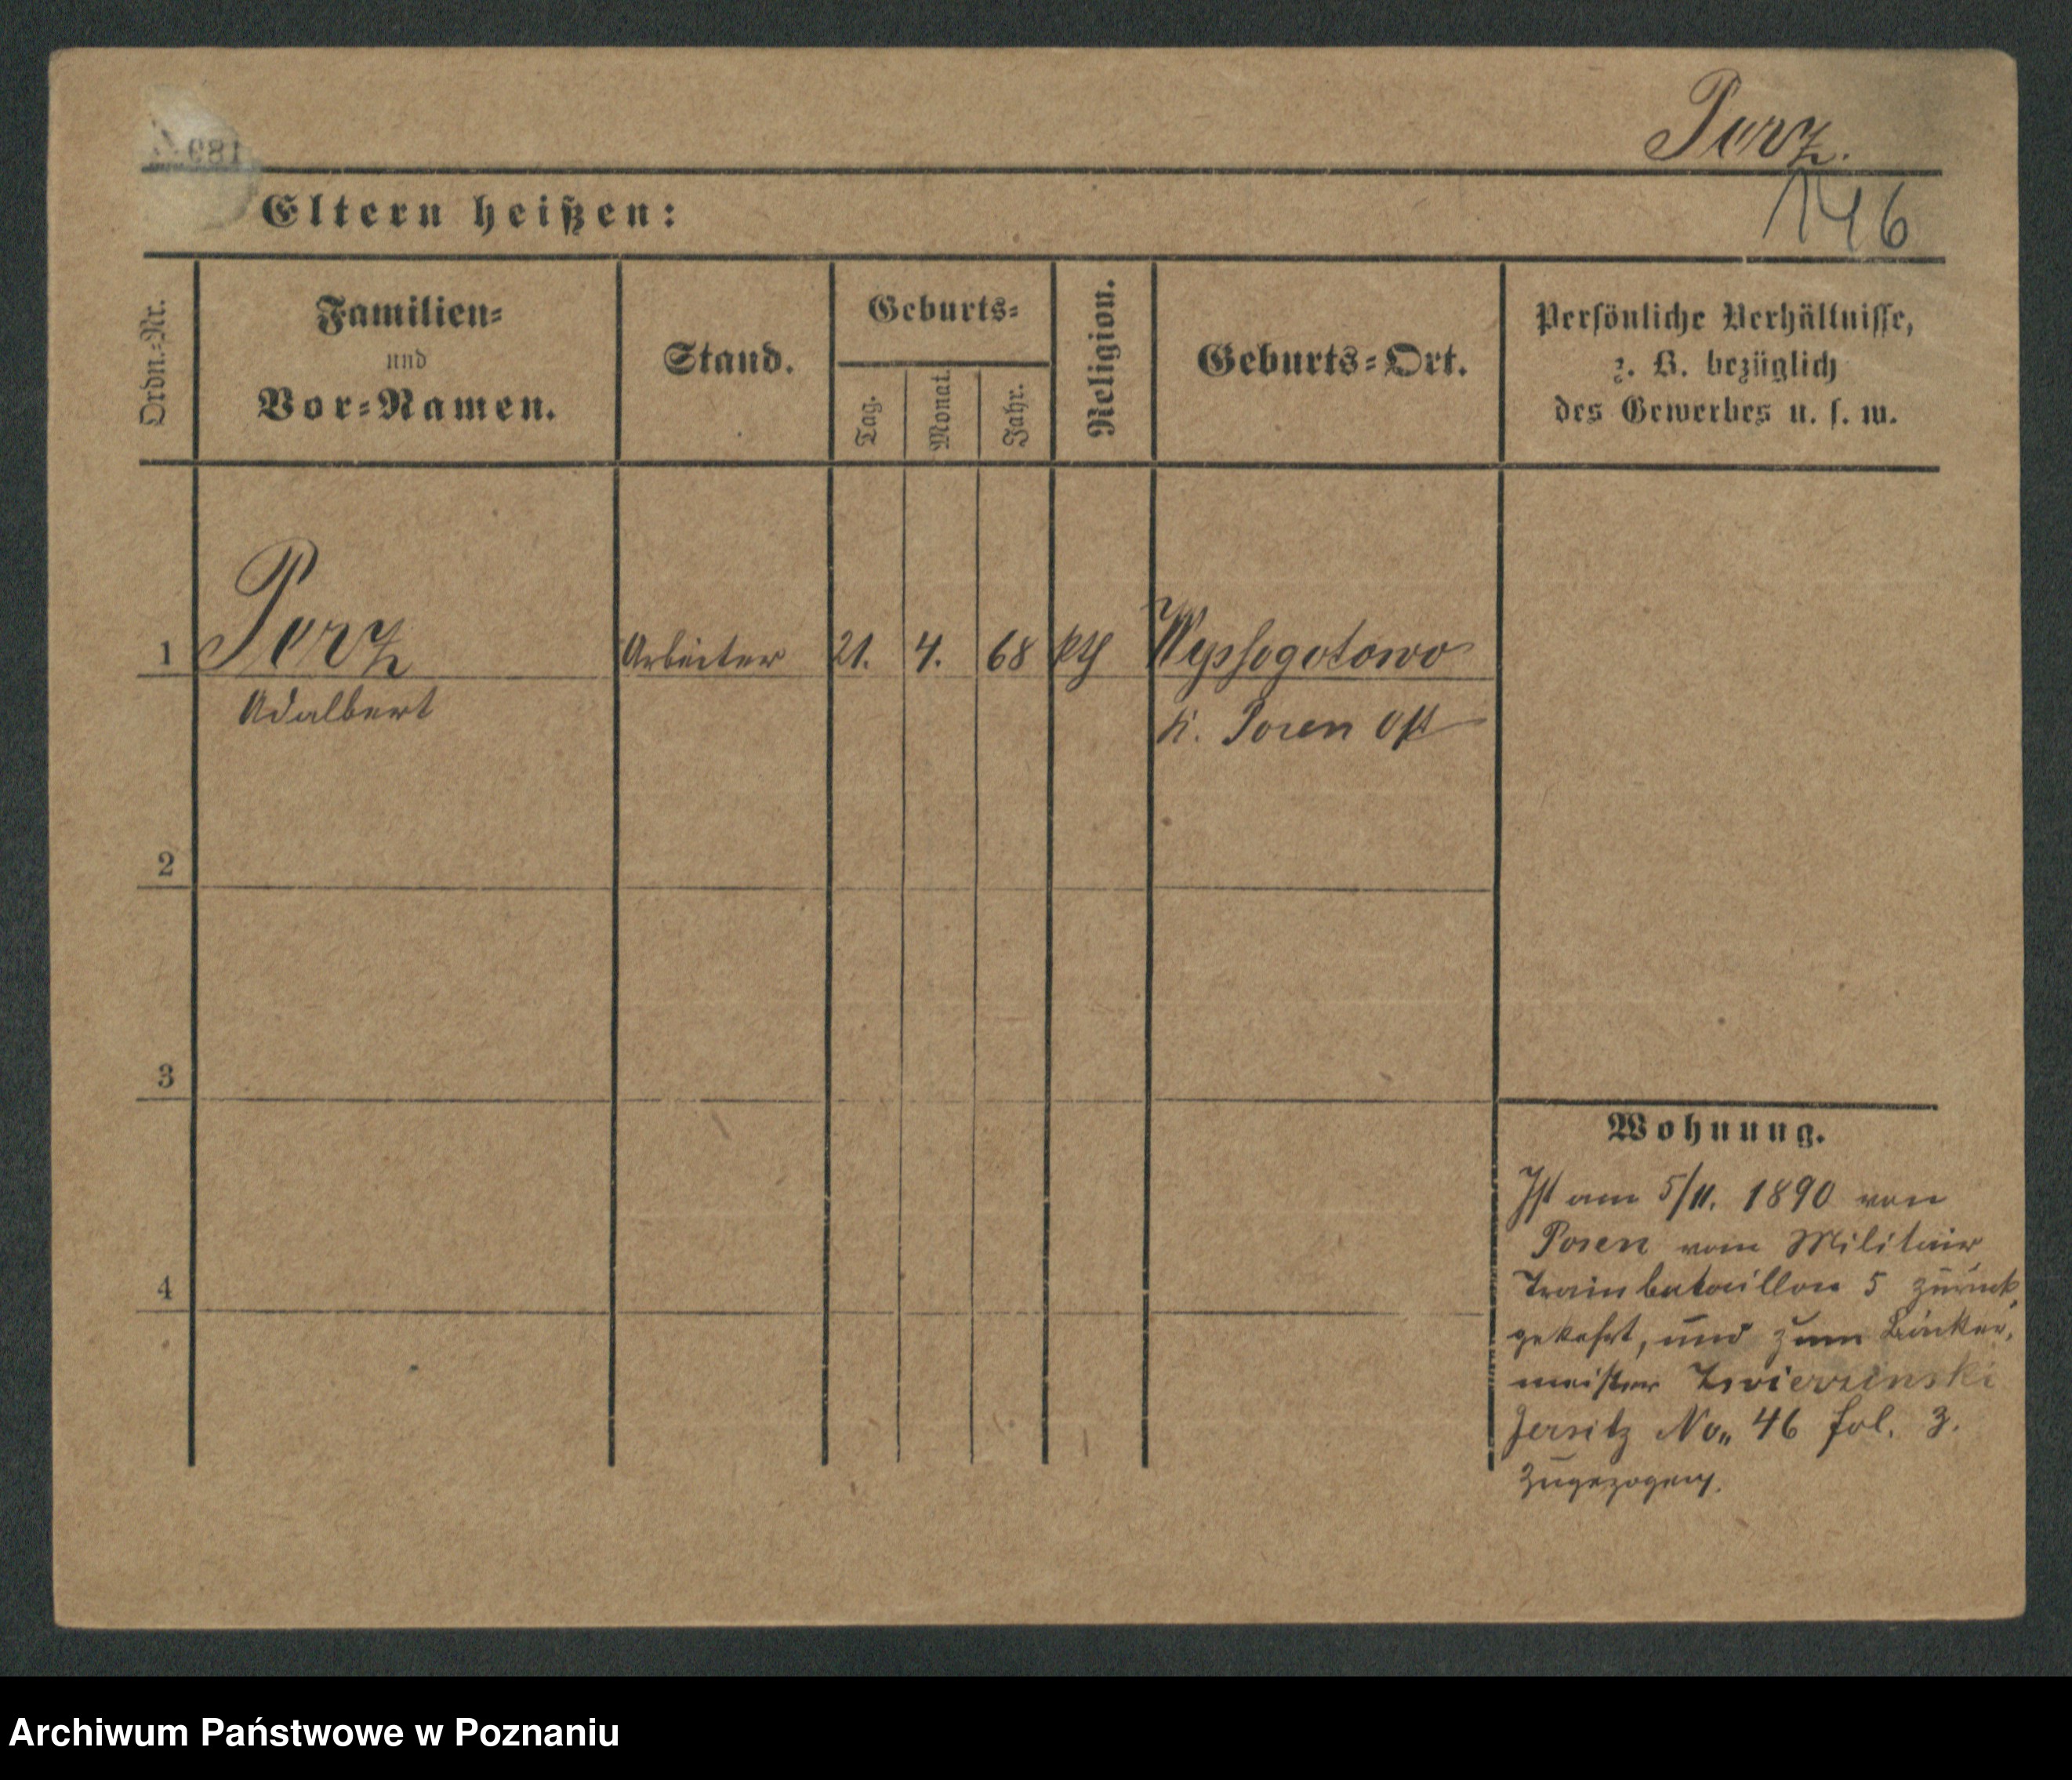 Porz.
146
Eltern heißen:
Ordn.-Nr.
Familien-
und
Vor-Namen.
Stand.
Geburts-
Tag.
Monat.
Jahr.
Religion.
Geburts-Ort.
Persönliche Verhältnisse,
z. B. bezüglich
des Gewerbes u. s. w.
1 Porz Arbeiter 21. 4. 68 kth Wyssogotowo
Adalbert K. Posen Ost
2
3
4
Wohnung.
Ist am 5/11. 1890 von
Posen vom Militair
Trainbataillon 5 zurück
gekehrt, und zum Bäcker,
meister
Jersitz No 46 fol. 3.
zugezogen.
Archiwum Państwowe w Poznaniu